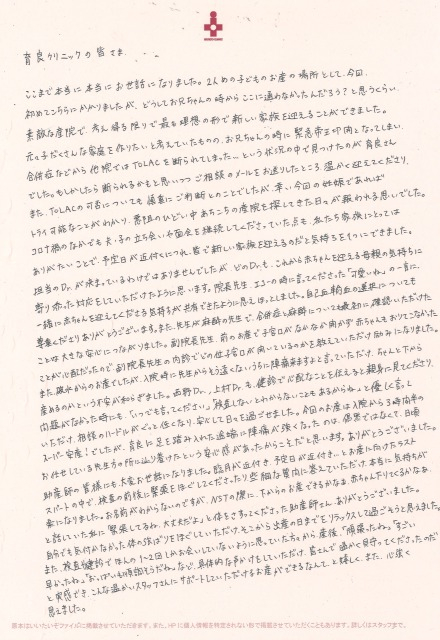 育良クリニックの皆さま
ここまで本当に本当にお世話になりました。2人めの子どものお産の場所として、今回、
初めてこちらにかかりましたが、どうしてお兄ちゃんの時からここに通わなかったんだろう？と思うくらい、
素敵な産院で、考え得る限りで最も理想の形で新しい家族を迎えることができました。
元々子だくさんな家庭を作りたいと考えていたものの、お兄ちゃんの時に緊急帝王切開となってしまい、
合併症などから他院ではTOLACを断られてしまった…という状況の中で見つけたのが育良さん
でした。もしかしたら断られるかもと思いつつご相談のメールをお送りしたところ、温かく迎えてくださり、
また、TOLACの可否についても慎重にご判断とのことでしたが、幸い今回の妊娠であれば
トライ可能なことがわかり、あちこちの産院を探してきた日々が報われる思いでした。
コロナ禍のなかでも夫・子の立ち会いや面会を継続してくださっていた点も、私たち家族にとっては
ありがたいことで、予定日が近付くにつれ、皆で新しい家族を迎えるのだと気持ちを1つにできました。
担当のDr.が決まっているわけではありませんでしたが、どのDr.も、これから赤ちゃんを迎える母親の気持ちに
寄り添った対応をしていただけたように思います。院長先生、エコーの時に言ってくださった「可愛いね」の一言に、
一緒に赤ちゃんを迎えてくださる気持ちが共有できたように思え、ほっとしました。自己血輸血の選択についても
尊重くださりありがとうございます。また、先生が麻酔の先生で、合併症と麻酔についても最初に確認いただけた
ことは大きな安心につながりました。副院長先生、前のお産で子宮口がなかなか開かず赤ちゃんもおりてこなかった
ことが心配だったので副院長先生の内診でどの位子宮口が開いているのかを教えていただけ励みになりました。
また、破水からのお産でしたが、入院時に先生からもう遠くないうちに陣痛来ますよと言っていただけ、ちゃんと下から
産めるのかという不安が和らぎました。西野Dr.、上村Dr.も、健診で心配なことを伝えると親身に見てくださり、
問題がなかった時にも、「いつでも言ってください。」「検査しないとわからないこともあるからね。」と優しく言って
いただけ、相談のハードルがぐっと低くなり、安心して日々を過ごせました。今回のお産は入院から3時間半の
スーパー安産！でしたが、育良に足を踏み入れた途端に陣痛が強くなったのは、偶然ではなくて、日頃
お任せしている先生方の所に辿り着けたという安心感があったからこそだと思います。ありがとうございました。
助産師の皆様にも大変お世話になりました。臨月が近付き、予定日が近付き…とお産に向けたラスト
スパートの中で、検査の前後に緊張をほぐしてくださったり、些細な質問に答えていただけ、本当に気持ちが
楽になりました。お名前がわからないのですが、NSTの際に、下からのお産できるかなぁ、赤ちゃん下りてくるかなぁ、
と話していた私に「緊張してるね、大丈夫だよ」と体をさすってくださった助産師さん、ありがとうございました。
自分でも気付かなかった体の強ばりをほぐしていただけ、そこから出産の日までをリラックスして過ごそうと思えました。
また、検査や健診でほんの1〜2回しかお会いしていないように思っていた方々から、産後、「頑張ったね。」「すごい
早かったね。」「おっぱいも順調そうだね。」など、具体的な声かけをしていただけ、皆さんで温かく見守ってくださったのだ
と実感でき、こんな温かいスタッフさんにサポートしていただけるお産ができるなんて、と嬉しく、また、心強く
思えました。
原本はいいたいぞファイルに掲載させていただきます。また、HPに個人情報を特定されない形で掲載させていただくこともあります。詳しくはスタッフまで。